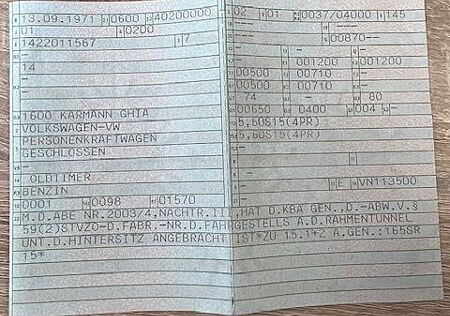 13.09.1971 0600 40200000
01 0200
1422011567 7
--
14
--
1600 KARMANN GHIA
VOLKSWAGEN-VW
PERSONENKRAFTWAGEN
GESCHLOSSEN
--
OLDTIMER
BENZIN
0001 0098 01570
02 01 0037/04000 145
-- 00870--
-- -- --
-- 001200 001200
00500 00710 -- --
00500 00710 -- --
74 80
00650 0400 004 --
5,60S15(4PR)
5,60S15(4PR)
--
--
E VN113500
M.D.ABE NR.2003/4,NACHTR.III,HAT D.KBA GEN.,D.-ABW.V.§
59(2)STVZO-D.FABR.-NR.D.FAHRGESTELLS A.D.RAHMENTUNNEL
UNT.D.HINTERSITZ ANGEBRACHT IST*ZU 15.1+2 A.GEN.:165SR
15*